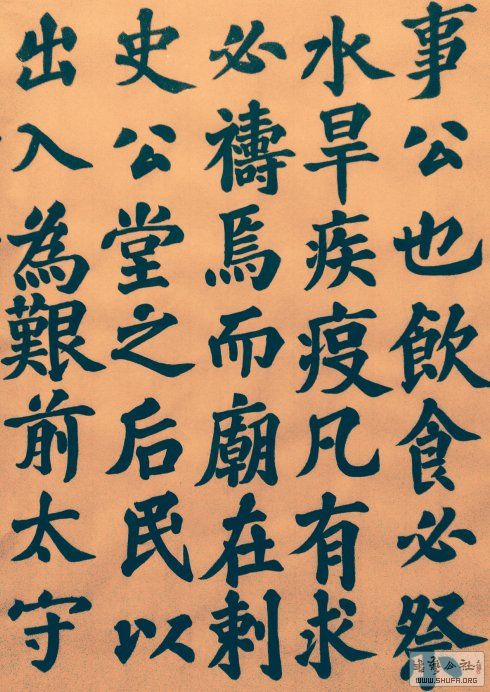 事公也飲食必祭
水旱疾疫凡有求
必禱焉而廟在刺
史公堂之后民以
出入為艱前太守
書艺公社
WWW.SHUFA.ORG